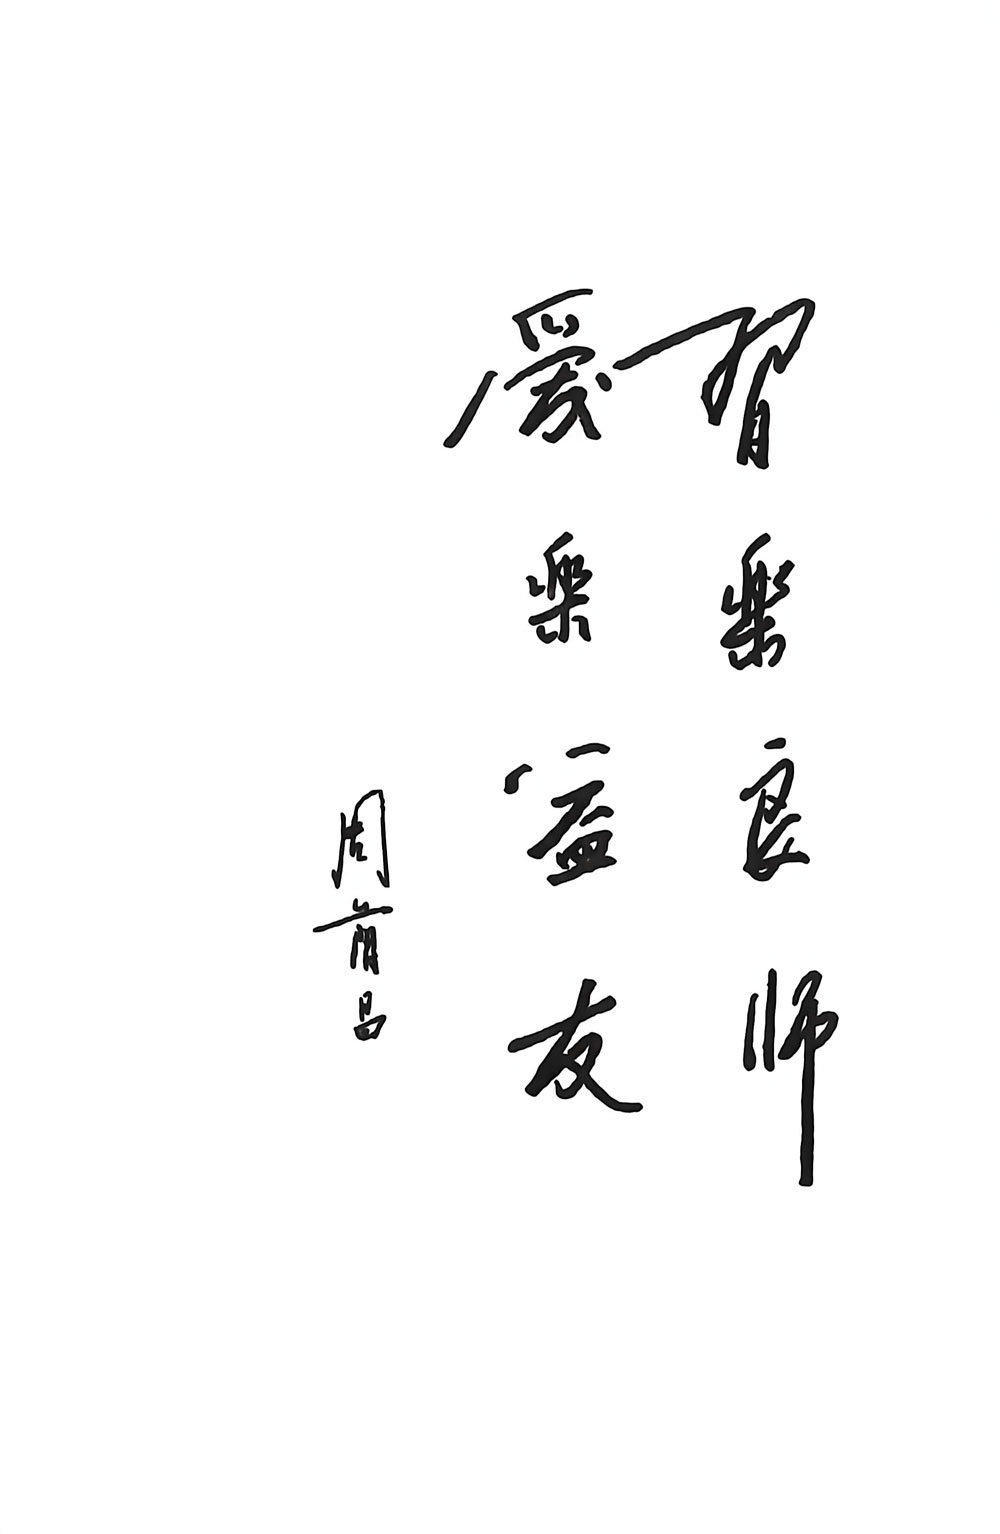 習樂良师
愛樂益友
周蔭昌